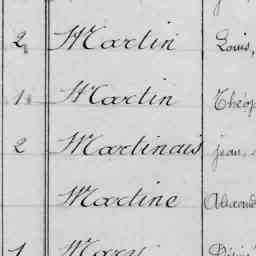 2 Martin Louis,
1 Martin Théop
2 Martinais jean,
Martine Alexand
1 Désiré